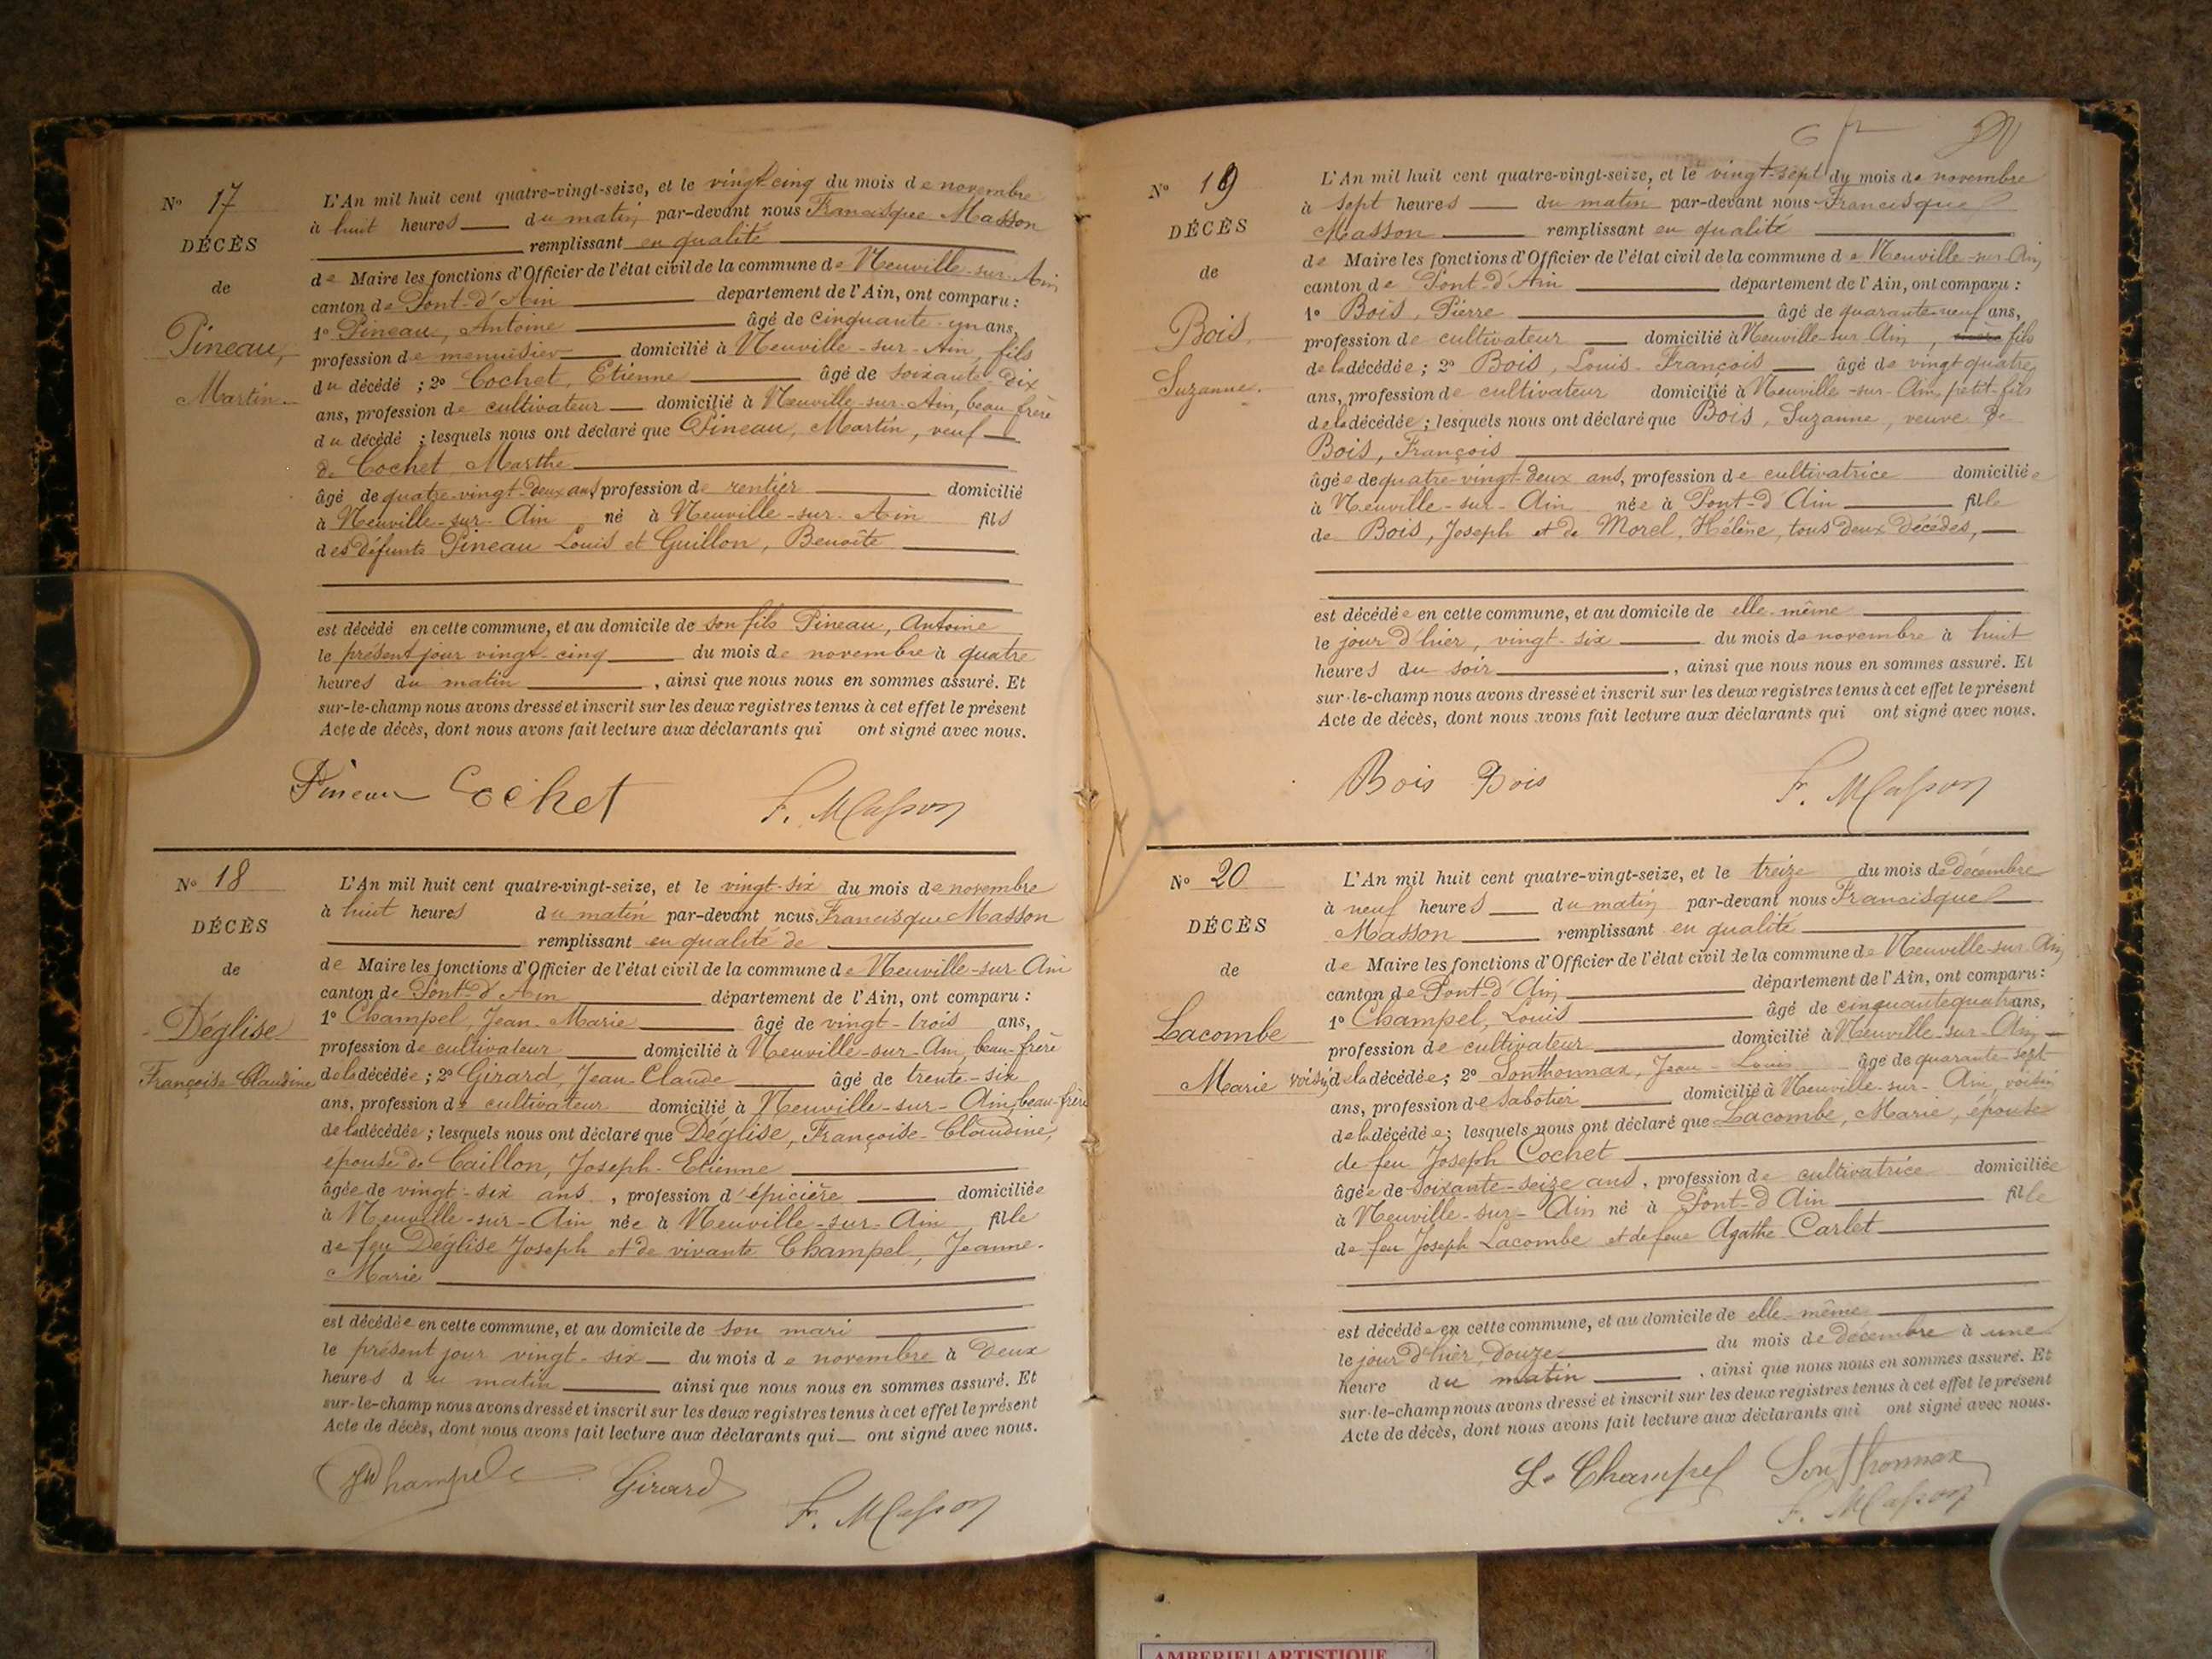 N° 17
DÉCÈS
de
Pineau,
Martin
L'An mil huit cent quatre-vingt-seize, et le vingt-cinq du mois de novembre
à huit heures du matin, par-devant nous Francisque Masson
remplissant en qualité
de Maire les fonctions d'Officier de l'état civil de la commune de Neuville-sur-Ain
canton de Pont-d'Ain département de l'Ain, ont comparu :
1° Pineau, Antoine âgé de cinquante-un ans,
profession de menuisier domicilié à Neuville-sur-Ain, fils
du décédé ; 2° Cochet, Etienne âgé de soixante dix
ans, profession de cultivateur domicilié à Neuville-sur-Ain, beau frère
du décédé ; lesquels nous ont déclaré que Pineau, Martin, veuf
de Cochet Marthe
âgé de quatre-vingt-deux ans profession de rentier domicilié
à Neuville-sur-Ain né à Neuville-sur-Ain fils
des défunts Pineau Louis et Guillon, Benoîte
est décédé en cette commune, et au domicile de son fils Pineau, Antoine
le présent jour vingt-cinq du mois de novembre à quatre
heures du matin, ainsi que nous nous en sommes assuré. Et
sur-le-champ nous avons dressé et inscrit sur les deux registres tenus à cet effet le présent
Acte de décès, dont nous avons fait lecture aux déclarants qui ont signé avec nous.
Pineau Cochet F. Masson
N° 18
DÉCÈS
de
Déglise
Françoise-Claudine
L'An mil huit cent quatre-vingt-seize, et le vingt-six du mois de novembre
à huit heures du matin par-devant nous Francisque Masson
remplissant en qualité de
de Maire les fonctions d'Officier de l'état civil de la commune de Neuville-sur-Ain
canton de Pont-d'Ain département de l'Ain, ont comparu :
1° Champel, Jean-Marie âgé de vingt-trois ans,
profession de cultivateur domicilié à Neuville-sur-Ain, beau-frère
de la décédée ; 2° Girard, Jean Claude âgé de trente-six
ans, profession de cultivateur domicilié à Neuville-sur-Ain, beau-frère
de la décédée ; lesquels nous ont déclaré que Déglise, Françoise-Claudine,
épouse de Caillon, Joseph-Etienne
âgée de vingt-six ans, profession d'épicière domiciliée
à Neuville-sur-Ain née à Neuville-sur-Ain, fille
de feu Déglise Joseph et de vivante Champel, Jeanne-
Marie
est décédée en cette commune, et au domicile de son mari
le présent jour vingt-six du mois de novembre à deux
heures du matin ainsi que nous nous en sommes assuré. Et
sur-le-champ nous avons dressé et inscrit sur les deux registres tenus à cet effet le présent
Acte de décès, dont nous avons fait lecture aux déclarants qui ont signé avec nous.
Girard F. Masson
N° 19
DÉCÈS
de
Bois
Suzanne.
L'An mil huit cent quatre-vingt-seize, et le vingt-sept du mois de novembre
à sept heures du matin par-devant nous Francisque
Masson remplissant en qualité
de Maire les fonctions d'Officier de l'état civil de la commune de Neuville-sur-Ain,
canton de Pont-d'Ain département de l'Ain, ont comparu :
1° Bois, Pierre âgé de quarante-neuf ans,
profession de cultivateur domicilié à Neuville-sur-Ain, fils
de la décédée ; 2° Bois, Louis-François âgé de vingt quatre
ans, profession de cultivateur domicilié à Neuville-sur-Ain, petit-fils
de la décédée ; lesquels nous ont déclaré que Bois, Suzanne, veuve de
Bois, François
âgée de quatre-vingt-deux ans, profession de cultivatrice domiciliée
à Neuville-sur-Ain née à Pont-d'Ain fille
de Bois, Joseph et de Morel, Hélène, tous deux décédés,
est décédée en cette commune, et au domicile de elle-même
le jour d'hier, vingt-six du mois de novembre à huit
heures du soir, ainsi que nous nous en sommes assuré. Et
sur-le-champ nous avons dressé et inscrit sur les deux registres tenus à cet effet le présent
Acte de décès, dont nous avons fait lecture aux déclarants qui ont signé avec nous.
Bois Bois F. Masson
N° 20
DÉCÈS
de
Lacombe
Marie
L'An mil huit cent quatre-vingt-seize, et le treize du mois de décembre
à neuf heures du matin par-devant nous Francisque
Masson remplissant en qualité
de Maire les fonctions d'Officier de l'état civil de la commune de Neuville-sur-Ain,
canton de Pont-d'Ain département de l'Ain, ont comparu :
1° Champel, Louis âgé de cinquante quatre ans,
profession de cultivateur domicilié à Neuville-sur-Ain
voisin de la décédée ; 2° Sonthonnax, Jean-Louis âgé de quarante-sept
ans, profession de sabotier domicilié à Neuville-sur-Ain, voisin
de la décédée ; lesquels nous ont déclaré que Lacombe, Marie, épouse
de feu Joseph Cochet
âgée de soixante-seize ans, profession de cultivatrice domiciliée
à Neuville-sur-Ain né à Pont-d'Ain fille
de feu Joseph Lacombe et de feue Agathe Carlet
est décédée en cette commune, et au domicile de elle-même
le jour d'hier, douze du mois de décembre à une
heure du matin, ainsi que nous nous en sommes assuré. Et
sur-le-champ nous avons dressé et inscrit sur les deux registres tenus à cet effet le présent
Acte de décès, dont nous avons fait lecture aux déclarants qui ont signé avec nous.
L. Champel Sonthonnax
F. Masson
AMBERIEU ARTISTIQUE